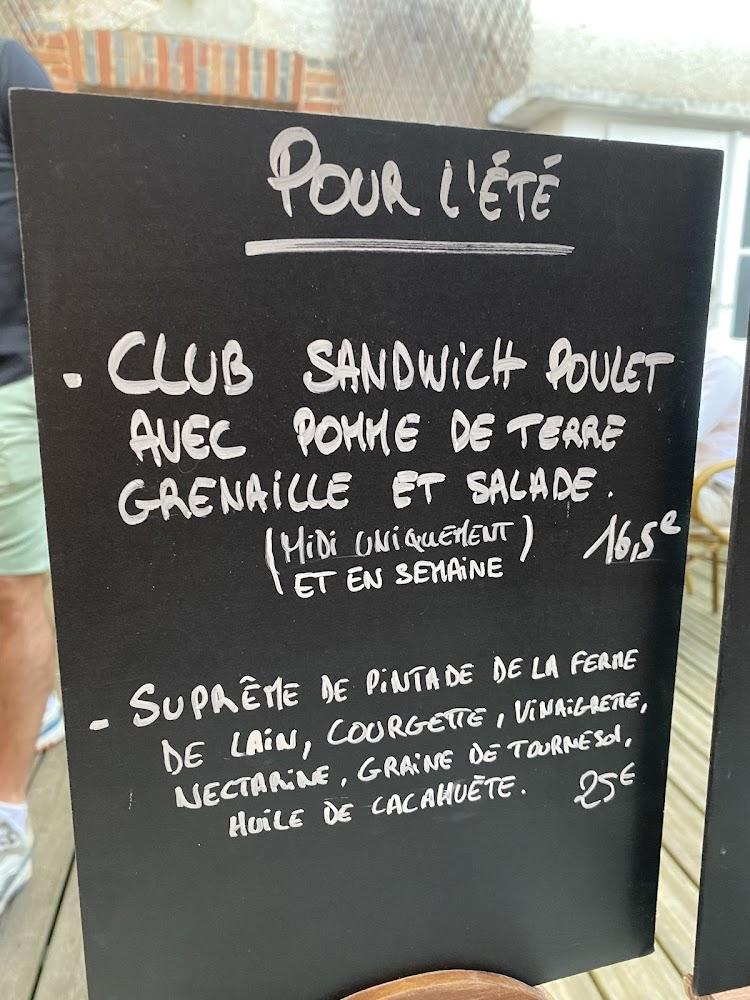 POUR L'ÉTÉ
. CLUB SANDWICH POULET
AVEC POMME DE TERRE
GRENAILLE ET SALADE.
(MIDI UNIQUEMENT) 16,5€
ET EN SEMAINE
- SUPRÊME DE PINTADE DE LA FERME
DE LAIN, COURGETTE, VINAIGRETTE,
NECTARINE, GRAINE DE TOURNESOL,
HUILE DE CACAHUÈTE. 25€